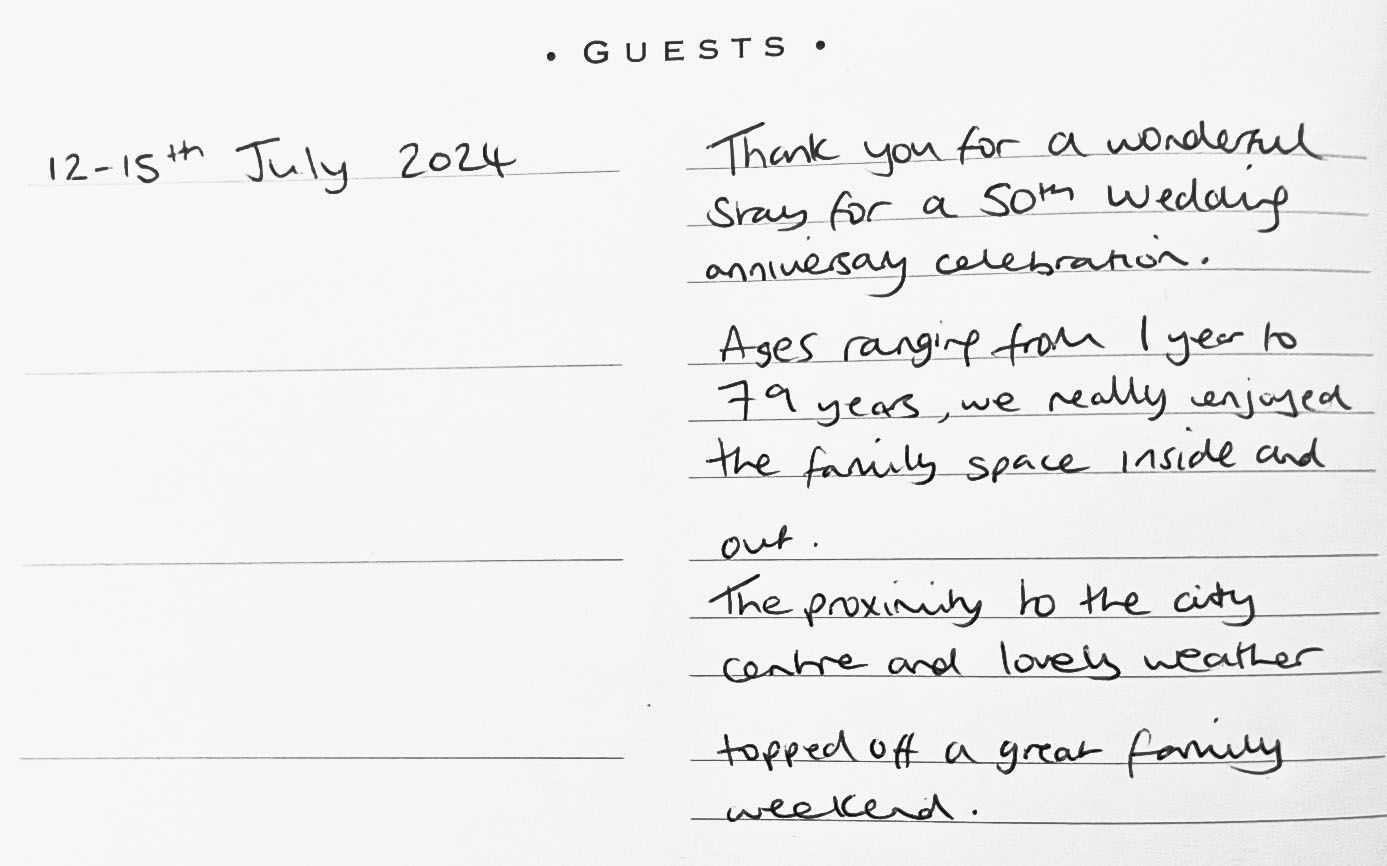 • GUESTS •
12-15th July 2024
Thank you for a wonderful
stay for a 50th wedding
anniversary celebration.
Ages ranging from 1 year to
79 years, we really enjoyed
the family space inside and
out.
The proximity to the city
centre and lovely weather
topped off a great family
weekend.